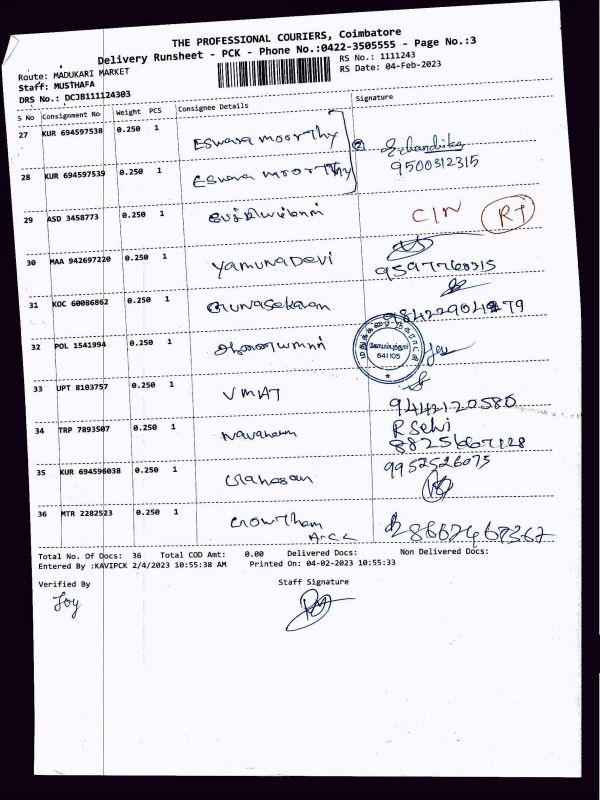 THE PROFESSIONAL COURIERS, Coimbatore
Delivery Runsheet - PCK - Phone No.:0422-3505555 - Page No.:3
Route: MADUKARI MARKET
RS No.: 1111243
Staff: MUSTHAFA
RS Date: 04-Feb-2023
DRS No.: DCJB111124303
S No Consignment No Weight PCS Consignee Details Signature
27 KUR 694597538 0.250 1 Eswara moorthy
② S.chandrika
28 KUR 694597539 0.250 1 Eswara moorthy 9500312315
29 ASD 3458773 0.250 1 CIN RT
30 MAA 942697220 0.250 1 Yamuna Devi
9597760315
31 KOC 60086862 0.250 1 Gunasekaran
32 POL 1541994 0.250 1 ஆணையாளர்
மதுக்கரை நகராட்சி
கோயம்புத்தூர்
641105
33 UPT 8103757 0.250 1 VMAT
9442120580
34 TRP 7893507 0.250 1 R Selvi
8825667128
35 KUR 694596038 0.250 1 9952526075
36 MTR 2282523 0.250 1 Gowtham
Total No. Of Docs: 36 Total COD Amt: 0.00 Delivered Docs: Non Delivered Docs:
Entered By :KAVIPCK 2/4/2023 10:55:38 AM Printed On: 04-02-2023 10:55:33
Verified By Staff Signature
Joy